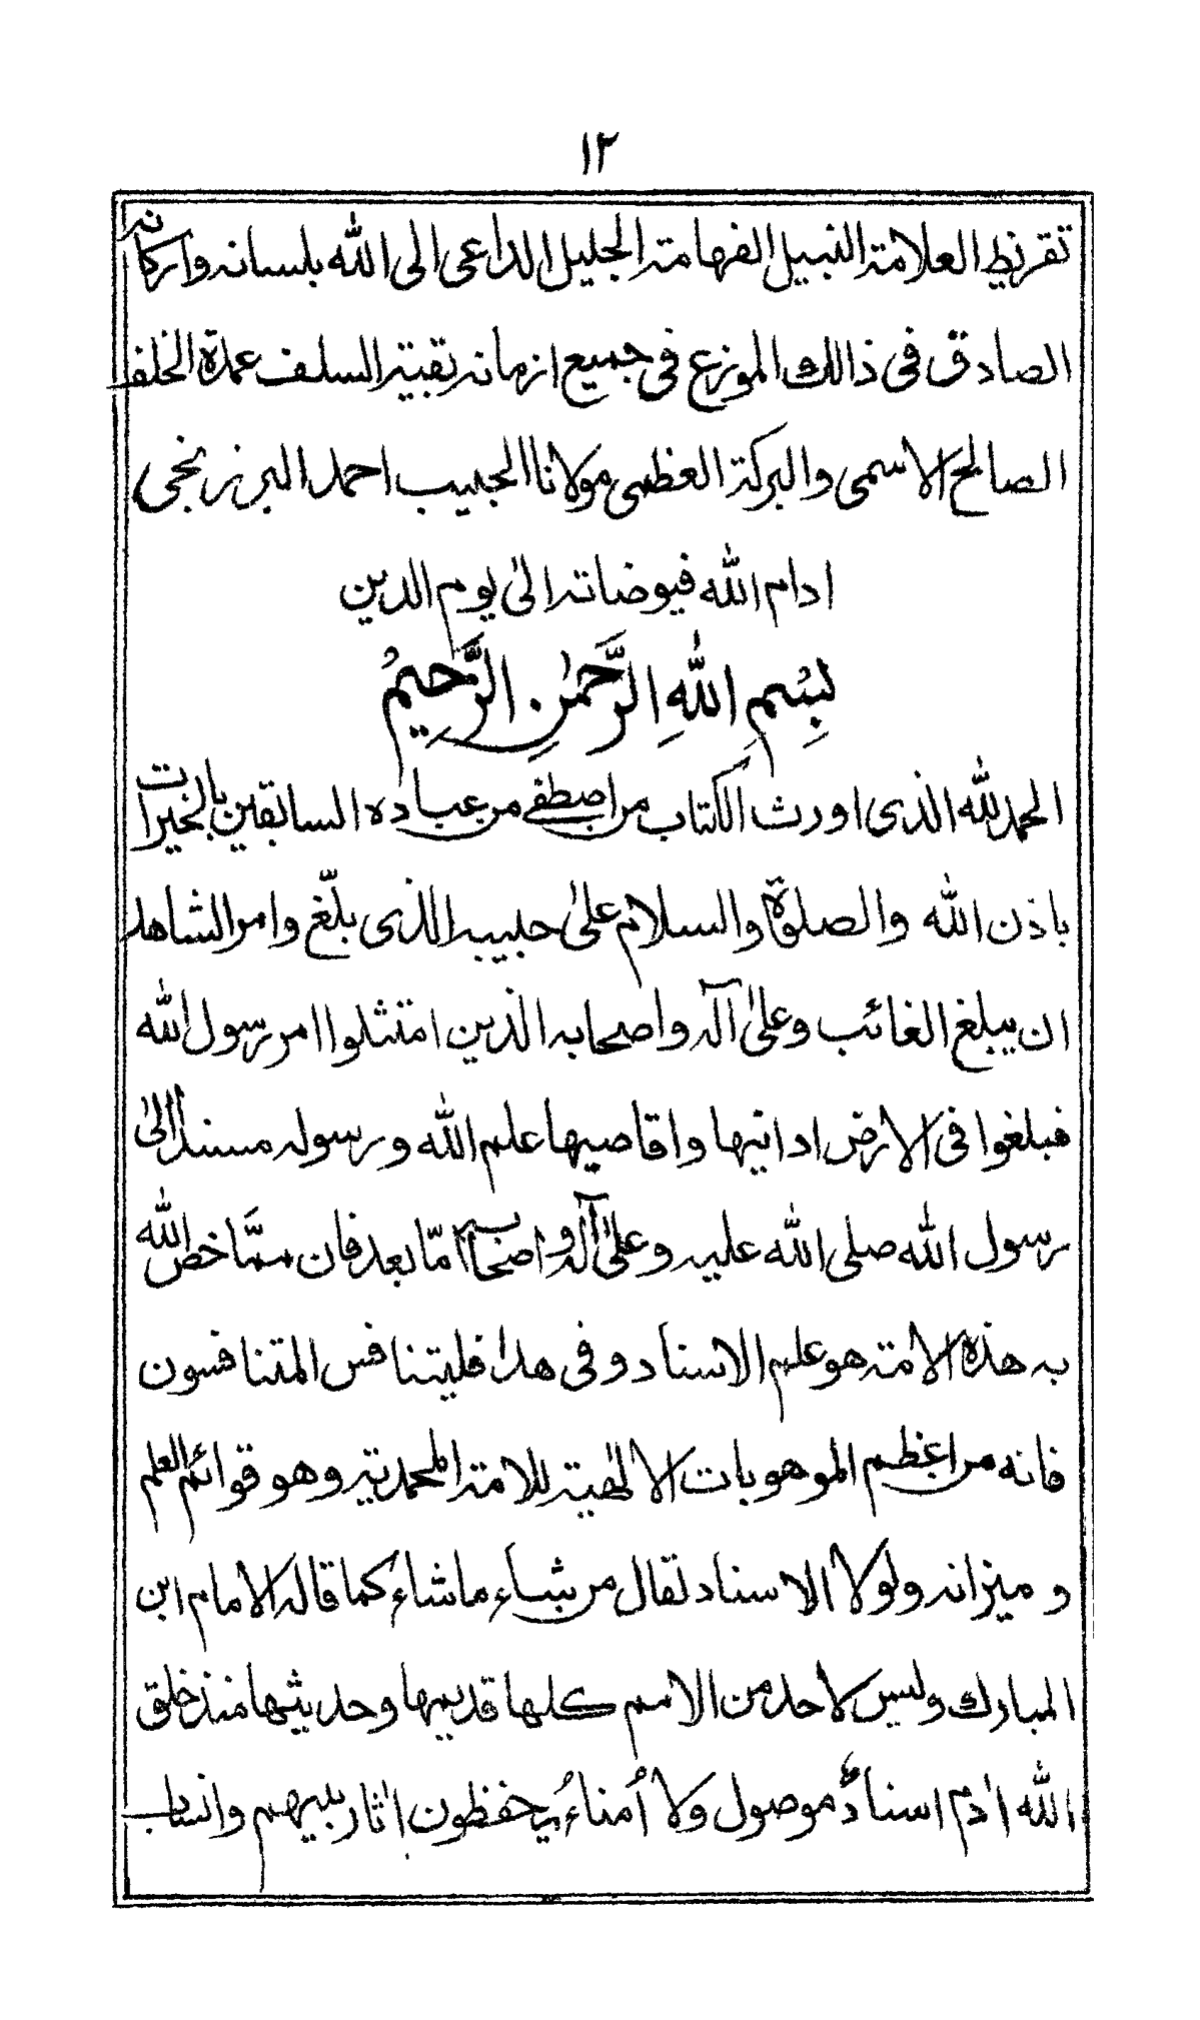 ١٢
تقريظ العلامة النبيل الفهامة الجليل الداعى الى الله بلسانه واركانه
الصادق فى ذالك الموزع فى جميع ازمانه بقية السلف عمدة الخلف
الصالح الاسمى والبركة العظمى مولانا الحبيب احمد البرزنجى
ادام الله فيوضاته الىٰ يوم الدين
بِسْمِ اللّٰهِ الرَّحْمٰنِ الرَّحِيمُ
الحمد لله الذى اورث الكتاب من اصطفى من عباده السابقين بالخيرات
باذن الله والصلوٰة والسلام علىٰ حبيبه الذى بلّغ وامر الشاهد
ان يبلغ الغائب وعلىٰ آله واصحابه الذين امتثلوا امر رسول الله
فبلغوا فى الارض ادانيها واقاصيها علم الله ورسوله مسندا الىٰ
رسول الله صلى الله عليه وعلىٰ آله واصحابه امّا بعد فان ممّا خص الله
به هذه الامة هو علم الاسناد وفى هذا فليتنافس المتنافسون
فانه من اعظم الموهوبات الالٰهية للامة المحمدية وهو قوائم العلم
وميزانه ولولا الاسناد لقال من شاء ما شاء كما قاله الامام ابن
المبارك وليس لاحد من الامم كلها قديمها وحديثها منذ خلق
الله اٰدم اسنادٌ موصول ولا أمناءُ يحفظون اٰثار نبيهم وانساب